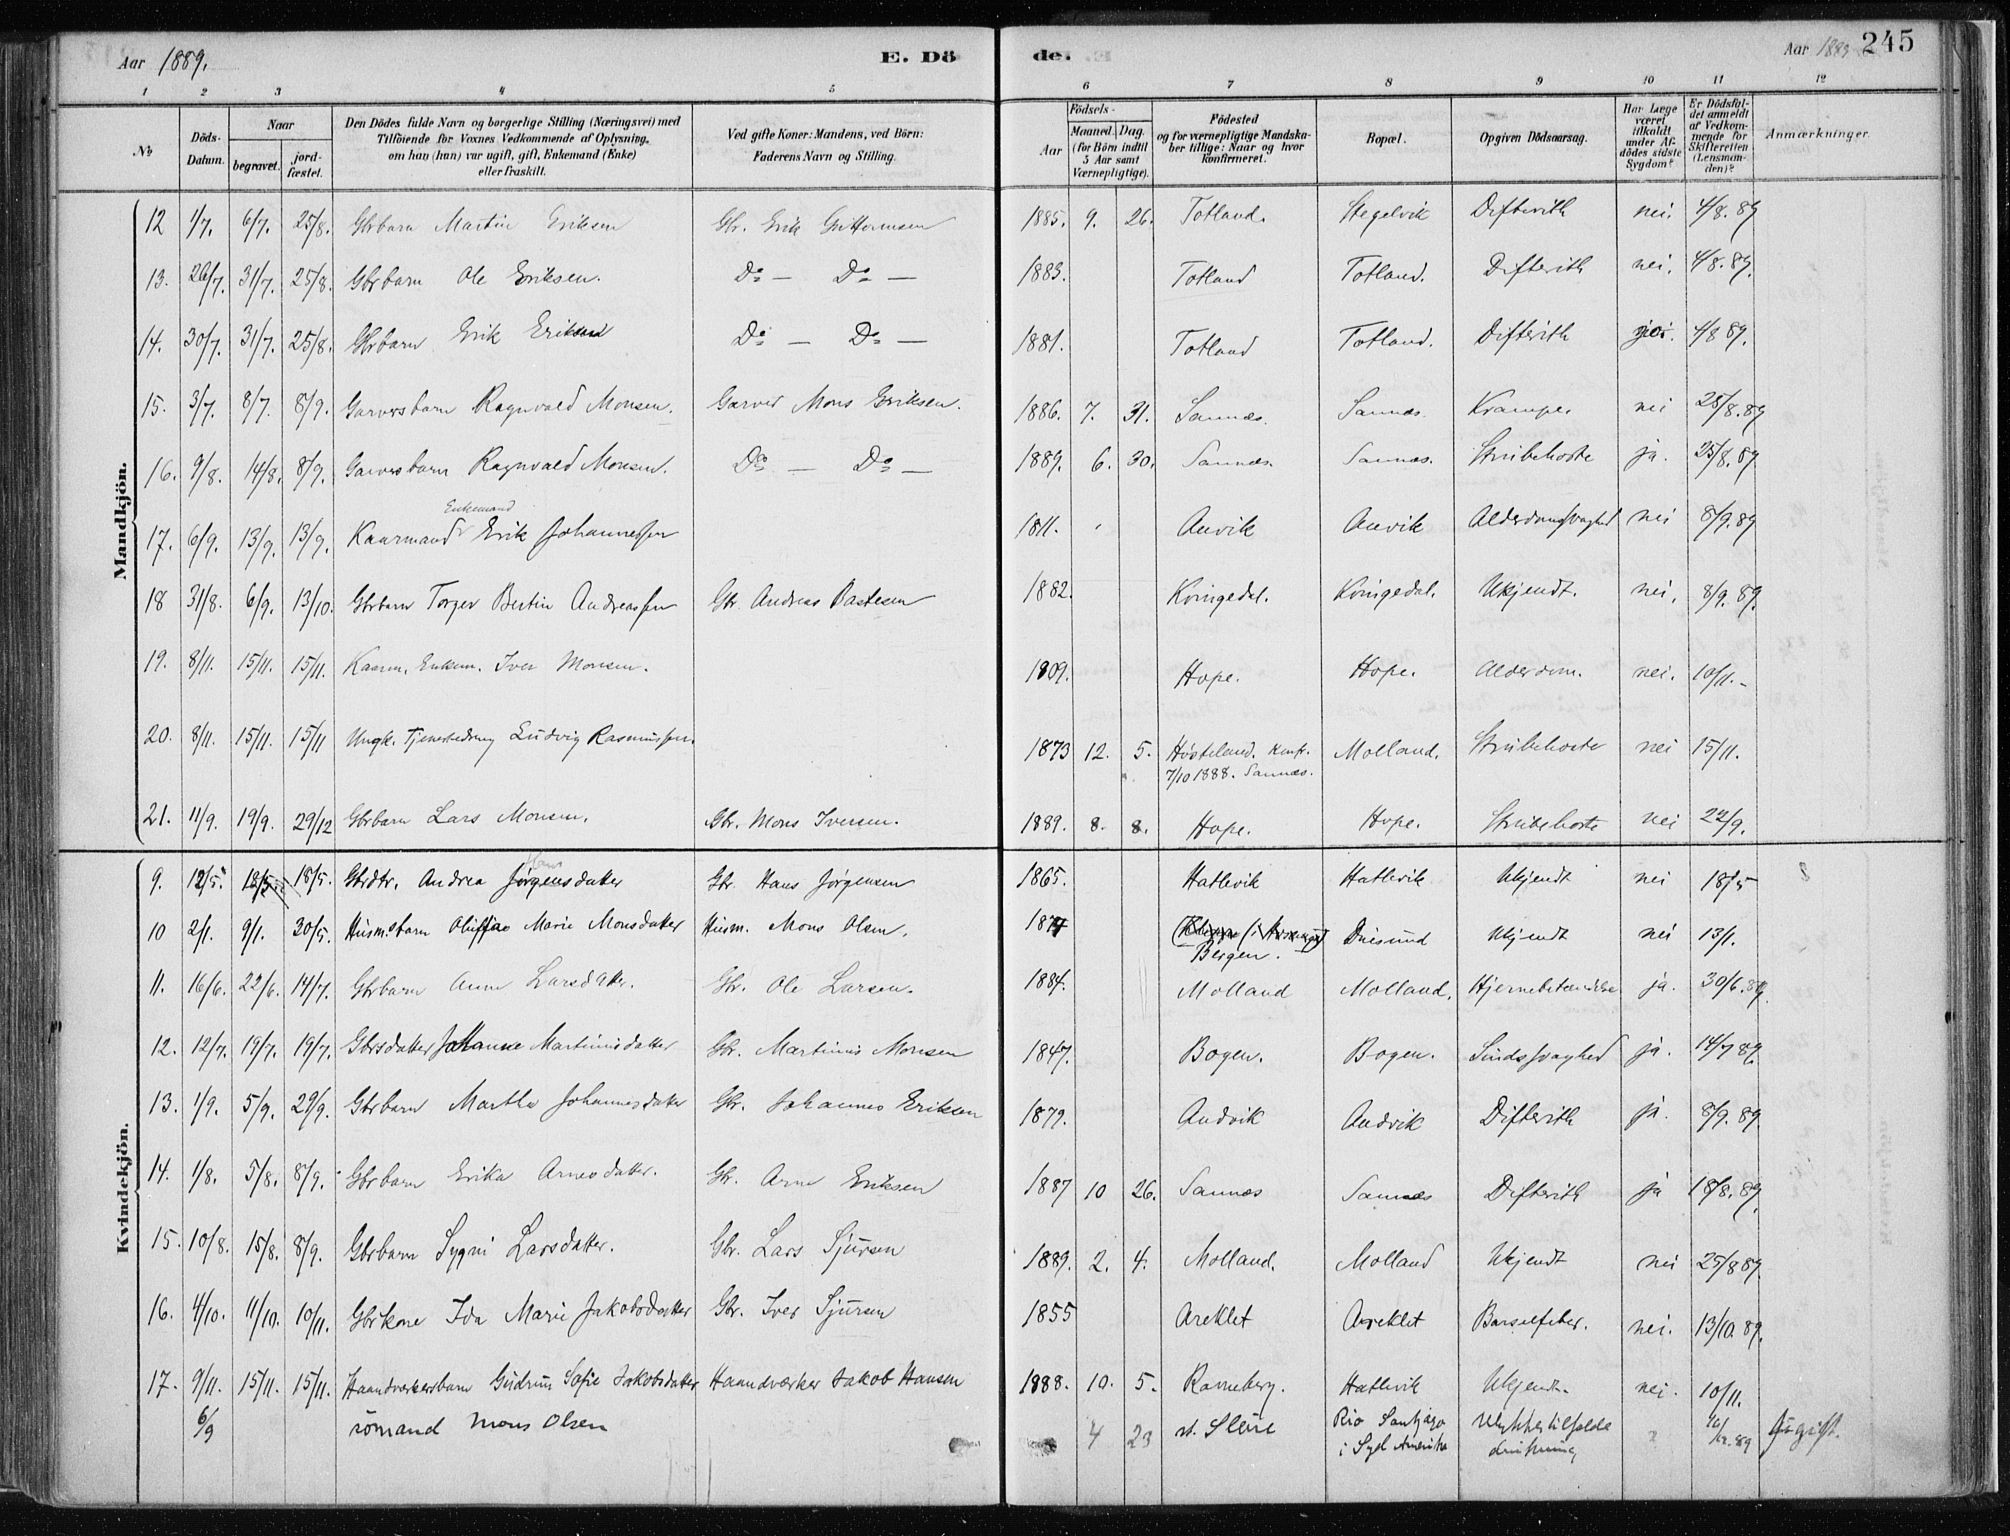 Aar 1889. E. Dö de. Aar 1889 245
1 2 3 4 5 6 7 8 9 10 11 12
No Döds-Datum. Naar begravet. jord-fæstet. Den Dödes fulde Navn og borgerlige Stilling (Næringsvei) med Tilföiende for Voxnes Vedkommende af Oplysning, om han (hun) var ugift, gift, Enkemand (Enke) eller fraskilt. Ved gifte Koner: Mandens, ved Börn: Faderens Navn og Stilling. Födsels- Aar Maaned. Dag. (for Börn indtil 5 Aar samt Værnepligtige). Födested og for værnepligtige Mandskaber tillige: Naar og hvor konfirmeret. Bopæl. Opgiven Dödsaarsag. Har Læge været tilkaldt under Afdödes sidste Sygdom? Er Dödsfaldet anmeldt af Vedkommende for Skifteretten (Lensmanden)? Anmærkninger.
Mandkjön.
12 1/7. 6/7. 25/8. Gbrbarn Martin Eriksen Gbr. Erik Guttormsen 1885. 9. 26. Totland. Stegelvik Difterith nei. 4/8. 89
13. 26/7. 31/7. 25/8. Gbrbarn Ole Eriksen. Do — Do — 1883. Totland Totland. Difterith nei. 4/8. 89.
14. 30/7. 31/7. 25/8. Gbrbarn Erik Eriksen Do — Do — 1881. Totland Totland. Difterith nei. 4/8 89.
15. 3/7. 8/7. 8/9. Garversbarn Ragnvald Monsen. Garver Mons Eriksen. 1886. 7. 31. Sannæs. Sannæs. Kramper nei 25/8. 89
16. 9/8. 14/8. 8/9. Garversbarn Ragnvald Monsen. Do — Do — 1889. 6. 30. Sannæs. Sannæs. Strubehoste ja. 25/8. 89
17. 6/9. 13/9. 13/9. Kaarmand Enkemand Erik Johannessen 1811. Anvik Anvik Alderdomssvaghed nei 8/9. 89
18 31/8. 6/9. 13/10. Gbrbarn Torger Bertin Andreassen Gbr. Andreas Bastesen 1882. Kvingedal. Kvingedal. Ukjendt. nei. 8/9. 89.
19. 8/11. 15/11. 15/11. Kaarm. Enkem. Iver Monsen. 1809. Hope. Hope. Alderdom. nei. 10/11.
20. 8/11. 15/11. 15/11 Ungk. Tjenestedreng Ludvig Rasmussen. 1873 12. 5. Høsteland. Konfr. 7/10 1888. Sannæs. Molland. Strubehoste nei 15/11.
21. 11/9. 19/9. 29/12 Gbrbarn Lars Monsen. Gbr. Mons Iversen. 1889. 8. 8. Hope. Hope. Strubehoste nei 22/9.
Kvindekjön.
9. 12/5. 18/5. 18/5. Gbrdtr. Andrea Hans Jørgensdatter Gbr. Hans Jørgensen 1865. Hatlevik Hatlevik Ukjendt nei 18/5
10 2/1. 9/1. 30/5. Husm.sbarn Marie Monsdatter Husm. Mons Olsen. Bergen. Ukjendt nei 13/1.
11. 16/6. 22/6. 14/7. Gbrbarn Anne Larsdatter. Gbr. Ole Larsen. 1884. Molland Molland. Hjernebetændelse ja. 30/6. 89.
12. 12/7. 19/7. 19/7. Gbrsdatter Johanne Martinusdatter Gbr. Martinus Monsen 1847. Bogen. Bogen. Sindssvaghed ja. 14/7 89.
13. 1/9. 5/9. 29/9. Gbrbarn Martha Johannesdatter Gbr. Johannes Eriksen 1879. Andvik Andvik Difterith ja. 8/9. 89.
14. 1/8. 5/8. 8/9. Gbrbarn Erika Arnesdatter. Gbr. Arne Eriksen 1887 10 26. Sannæs Sannæs Difterith ja 18/8. 89.
15. 10/8. 15/8. 8/9. Gbrbarn Sygni Larsdatter. Gbr. Lars Sjursen 1889. 2. 4. Molland. Molland Ukjendt nei 25/8 89.
16. 4/10. 11/10. 10/11. Gbrkone Ida Marie Jakobsdatter Gbr. Iver Sjursen 1855 Areklet Areklet Barselfeber. nei. 13/10. 89.
17. 9/11. 15/11. 15/11. Haandværkersbarn Gudrun Sofie Jakobsdatter Haandværker Jakob Hansen 1888. 10. 5. Ravneberg. Hatlevik Ukjendt. nei. 10/11.
6/9 sömand Mons Olsen 4 23 Rio Santjago i Syd Amerika Ulykkestilfælde drukning ? Ugift.